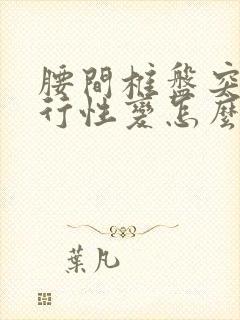 腰間椎盤突
行性變怎麼
葉凡